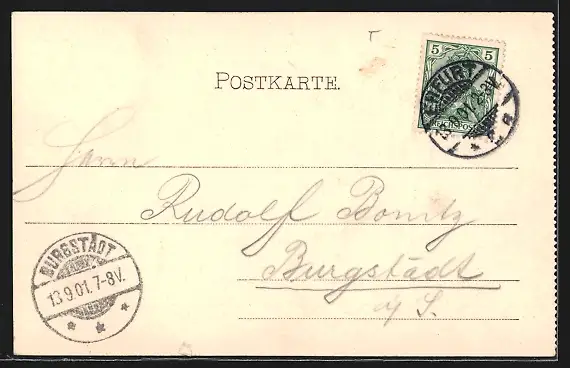 5 5
POSTKARTE.
ERFURT
Herrn
Rudolf Bonitz
Burgstädt
i/S.
BURGSTÄDT
13.9.01.7-8V.